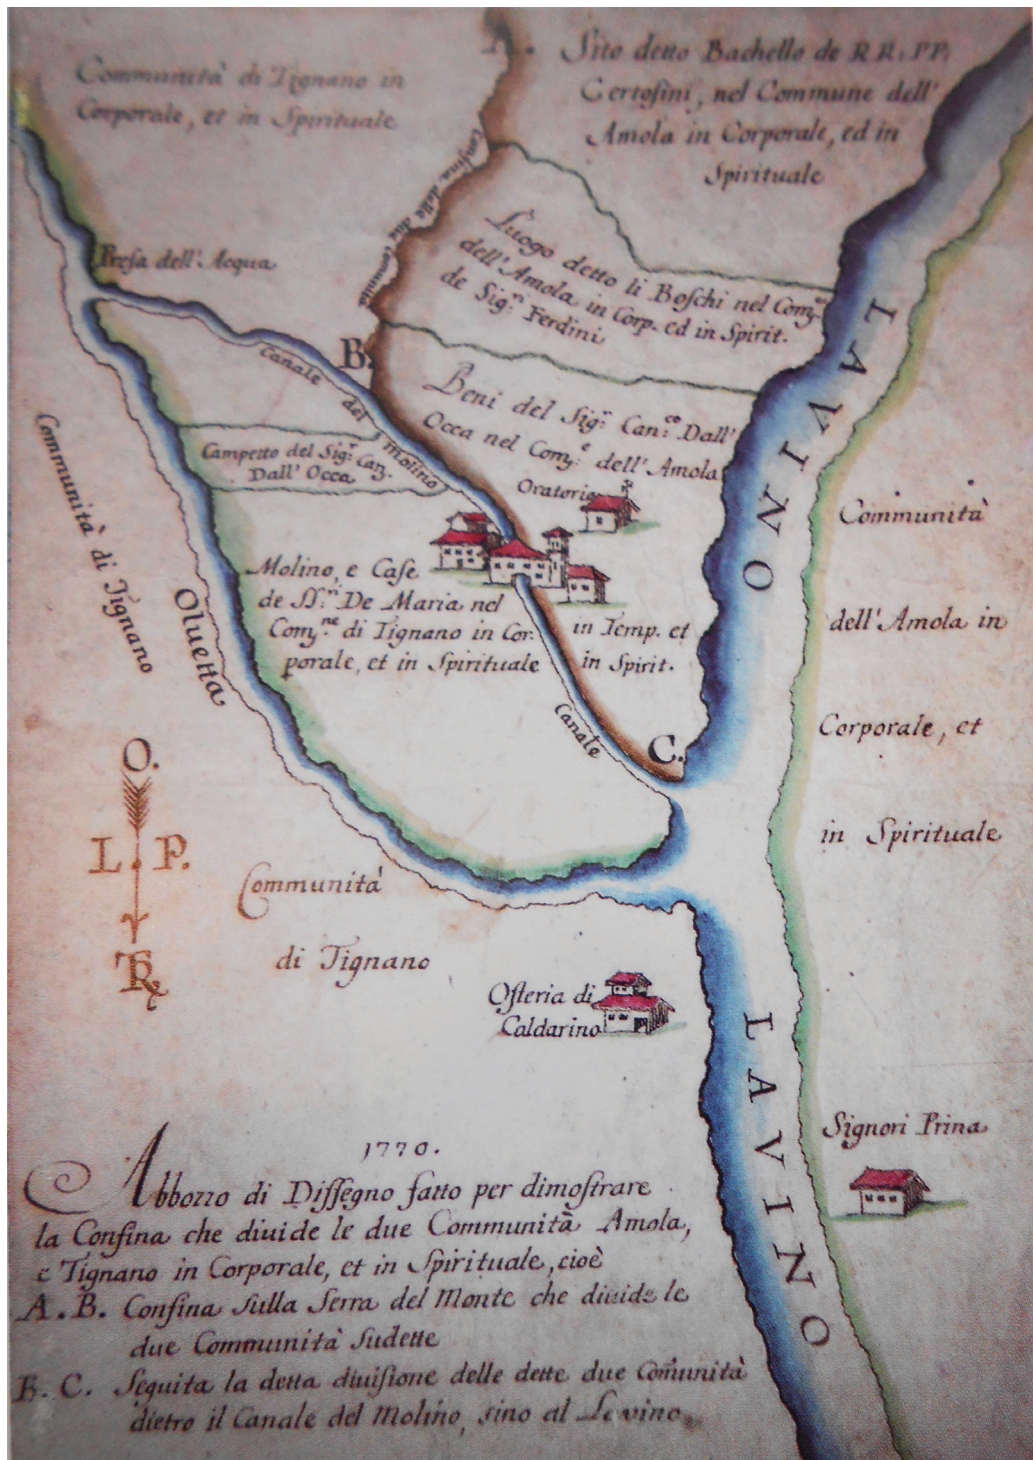 A.
Sito detto Bachello de RR: PP:
Certosini, nel Commune dell'
Amola in Corporale, ed in
Spirituale
Communità di Tignano in
Corporale, et in Spirituale
Confina delle due Comunità
Luogo detto li Boschi nel Com.ᵉ
dell'Amola in Corp. ed in Spirit.
de Sig.ʳⁱ Ferdini
Presa dell'Acqua
B.
Canale del Molino
Beni del Sig.ʳ Can.ᶜᵒ Dall'
Occa nel Com.ᵉ dell'Amola
Campetto del Sig.ʳ Can.
Dall'Occa
Oratorio
LAVINO
Communità
dell'Amola in
Corporale, et
in Spirituale
Communità di Tignano
Oluetta
Molino, e Case
de SS.ʳⁱ De Maria nel
Com.ⁿᵉ di Tignano in Cor:
porale, et in Spirituale
in Temp. et
in Spirit.
Canale
C.
O.
L P.
TR
Communità
di Tignano
Osteria di
Caldarino
LAVINO
Signori Prina
1770.
Abbozzo di Dissegno fatto per dimostrare
la Confina che diuide le due Communità Amola,
e Tignano in Corporale, et in Spirituale, cioè
A. B. Confina sulla Serra del Monte che diuide le
due Communità sudette
B. C. Seguita la detta diuisione delle dette due Comunità
dietro il Canale del Molino, sino al Levino